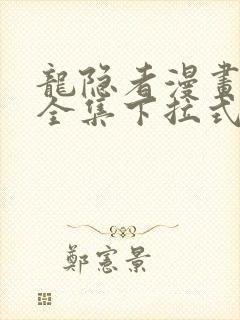 龍隐者漫畫
全集下拉式
鄭憲景